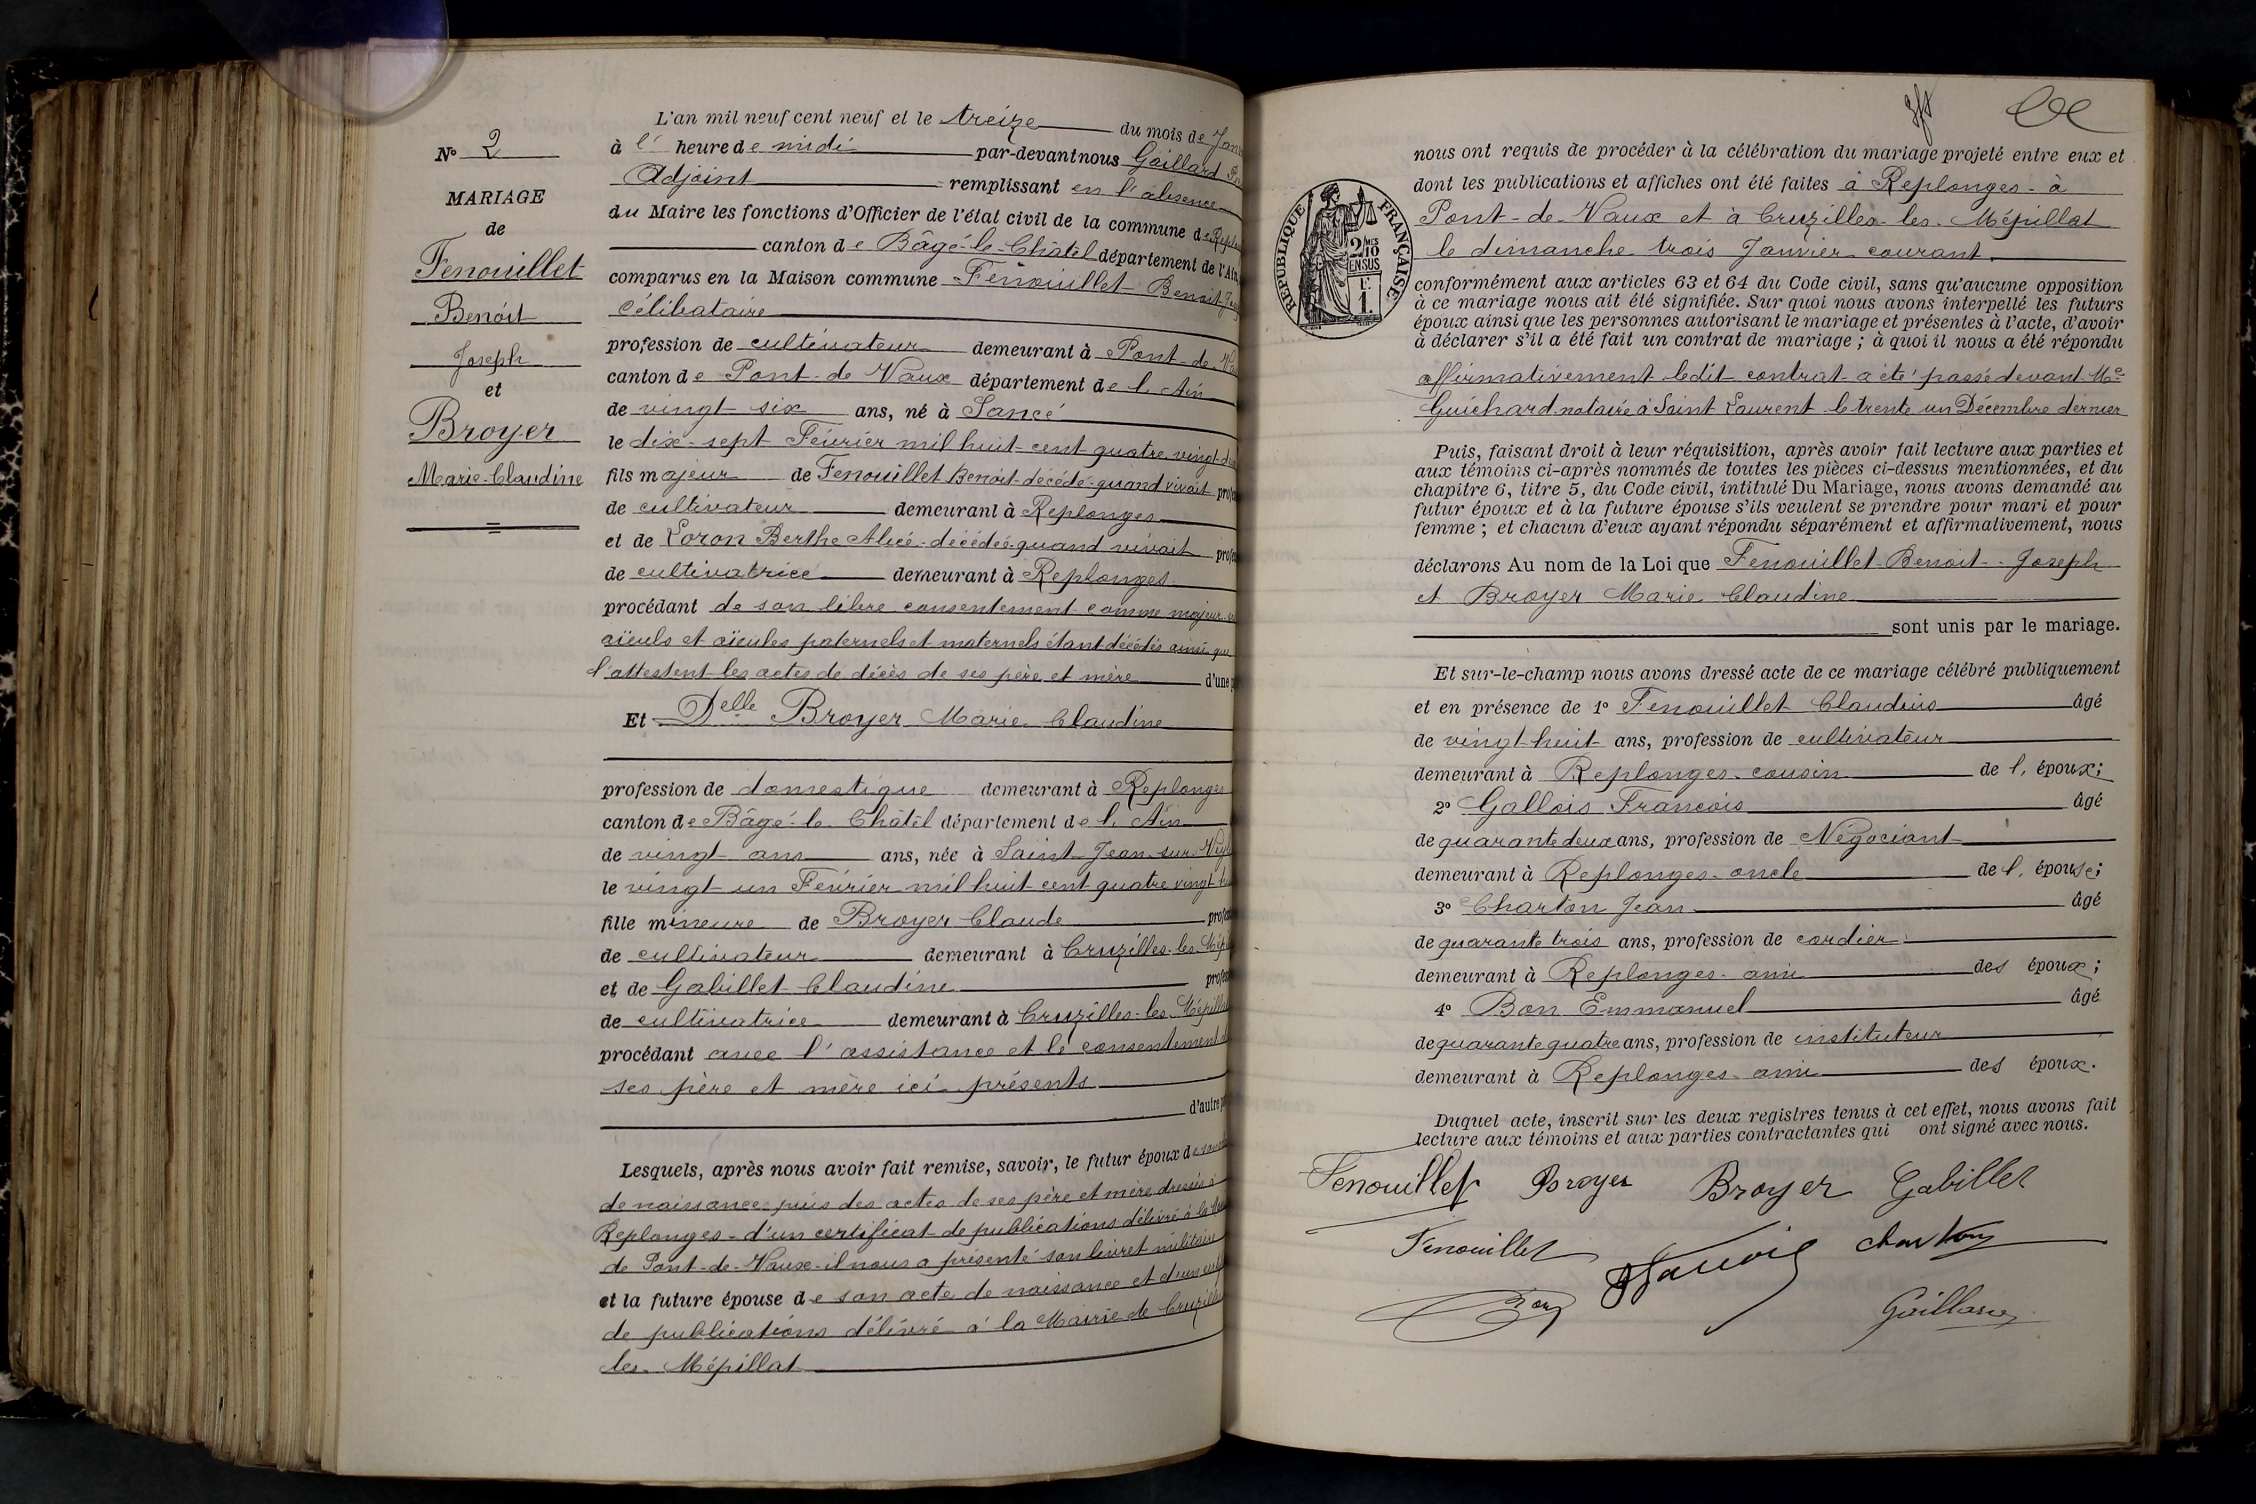 N° 2
MARIAGE
de
Fenouillet
Benoît
Joseph
et
Broyer
Marie-Claudine
L'an mil neuf cent neuf et le treize du mois de
à l' heure de midi par-devant nous Gaillard
Adjoint remplissant en l'absence
du Maire les fonctions d'Officier de l'état civil de la commune de
canton de Bâgé-le-Châtel département de l'Ain,
comparus en la Maison commune Fenouillet Benoit
célibataire
profession de cultivateur demeurant à Pont-de-
canton de Pont-de-Vaux département de l'Ain
de vingt-six ans, né à Sancé
le dix-sept Février mil huit-cent quatre vingt
fils majeur de Fenouillet Benoit-décédé-quand vivait
de cultivateur demeurant à Replonges
et de Loron Berthe Alice-décédée-quand vivait
de cultivatrice demeurant à Replonges
procédant de son libre consentement comme majeur
aïeuls et aïeules paternels et maternels étant décédés ainsi que
l'attestent les actes de décès de ses père et mère d'une
Et Delle Broyer Marie Claudine
profession de domestique demeurant à Replonges
canton de Bâgé-le-Châtel département de l'Ain
de vingt ans ans, née à Saint-Jean-sur-
le vingt-un Février mil huit cent quatre vingt
fille mineure de Broyer Claude
de cultivateur demeurant à Cruzilles-les-
et de Gabillet Claudine
de cultivatrice demeurant à Cruzilles-les-Mépillat
procédant avec l'assistance et le consentement
ses père et mère ici présents
d'autre
Lesquels, après nous avoir fait remise, savoir, le futur époux de
de naissance puis des actes de ses père et mère dressés à
Replonges-d'un certificat de publications délivré à la
de Pont-de-Vaux-il nous a présenté son livret militaire
et la future épouse de son acte de naissance et d'un
de publications délivré à la Mairie de
les-Mépillat
nous ont requis de procéder à la célébration du mariage projeté entre eux et
dont les publications et affiches ont été faites à Replonges-à
Pont-de-Vaux et à Cruzilles-les-Mépillat
le dimanche trois Janvier courant.
RÉPUBLIQUE FRANÇAISE
2/10 MES
EN SUS
1 F.
conformément aux articles 63 et 64 du Code civil, sans qu'aucune opposition
à ce mariage nous ait été signifiée. Sur quoi nous avons interpellé les futurs
époux ainsi que les personnes autorisant le mariage et présentes à l'acte, d'avoir
à déclarer s'il a été fait un contrat de mariage ; à quoi il nous a été répondu
affirmativement ledit contrat a été passé devant Me
Guichard notaire à Saint Laurent le trente un Décembre dernier
Puis, faisant droit à leur réquisition, après avoir fait lecture aux parties et
aux témoins ci-après nommés de toutes les pièces ci-dessus mentionnées, et du
chapitre 6, titre 5, du Code civil, intitulé Du Mariage, nous avons demandé au
futur époux et à la future épouse s'ils veulent se prendre pour mari et pour
femme ; et chacun d'eux ayant répondu séparément et affirmativement, nous
déclarons Au nom de la Loi que Fenouillet-Benoit-Joseph
et Broyer Marie Claudine
sont unis par le mariage.
Et sur-le-champ nous avons dressé acte de ce mariage célébré publiquement
et en présence de 1° Fenouillet Claudius âgé
de vingt-huit ans, profession de cultivateur
demeurant à Replonges-cousin de l' époux;
2° Gallois François âgé
de quarante deux ans, profession de Négociant
demeurant à Replonges-oncle de l' épouse;
3° Charton Jean âgé
de quarante trois ans, profession de cordier
demeurant à Replonges-ami des époux;
4° Bon Emmanuel âgé
de quarante quatre ans, profession de instituteur
demeurant à Replonges-ami des époux.
Duquel acte, inscrit sur les deux registres tenus à cet effet, nous avons fait
lecture aux témoins et aux parties contractantes qui ont signé avec nous.
Fenouillet Broyer Broyer Gabillet
Fenouillet Charton
Bon Gaillard